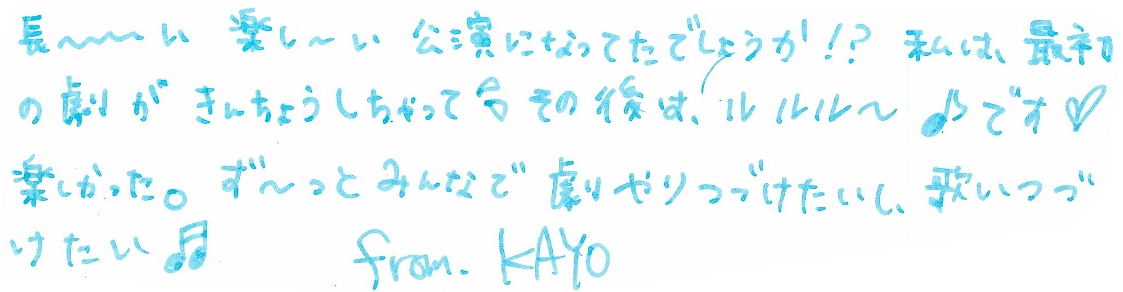 長〜〜〜い 楽し〜い 公演になってたでしょうか!? 私は、最初
の劇が きんちょうしちゃって💧その後は、ルルルル〜♪です♡
楽しかった。ず〜っとみんなで劇やりつづけたいし、歌いつづ
けたい♫ from. KAYO